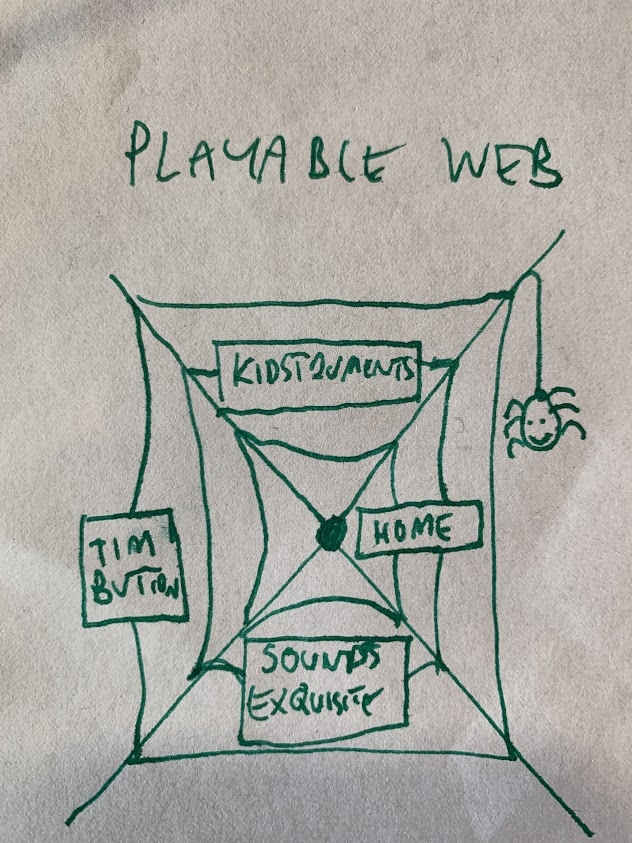 PLAYABLE WEB
KIDSTRUMENTS
HOME
TIM
BUTTON
SOUNDS
EXQUISITE